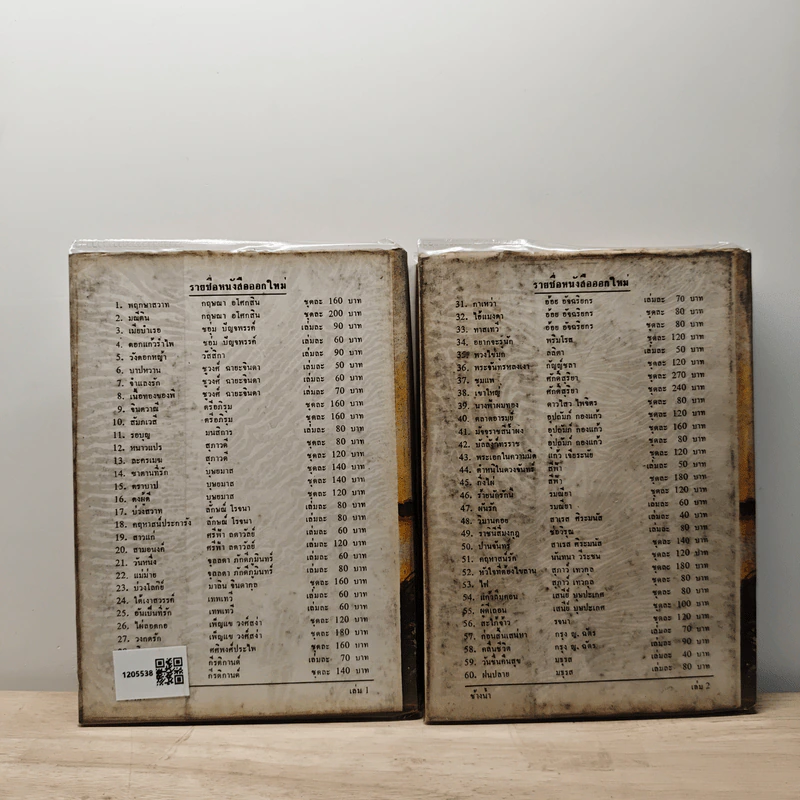 รายชื่อหนังสือออกใหม่
1. พฤกษาสวาท กฤษณา อโศกสิน ชุดละ 160 บาท
2. มณีดิน กฤษณา อโศกสิน ชุดละ 200 บาท
3. เมื่อบ่าเรอ ชอุ่ม ปัญจพรรค์ เล่มละ 90 บาท
4. ดอกแก้วรำไพ ชอุ่ม ปัญจพรรค์ เล่มละ 60 บาท
5. วังดอกหญ้า วัสสิกา เล่มละ 90 บาท
6. บาปหวาน ชูวงศ์ ฉายะจินดา เล่มละ 50 บาท
7. จำเลยรัก ชูวงศ์ ฉายะจินดา เล่มละ 60 บาท
8. เนื้อทองของพี่ ชูวงศ์ ฉายะจินดา เล่มละ 70 บาท
9. จินตวาณี ตรีอภิรุม ชุดละ 160 บาท
10. ตรีอภิรุม ชุดละ 160 บาท
11. รอบุญ มนัสการ เล่มละ 80 บาท
12. ทนาวแปร สุภาวดี ชุดละ 80 บาท
13. ละครเมฆ สุภาวดี ชุดละ 120 บาท
14. ซาตานที่รัก บุษยมาส ชุดละ 140 บาท
15. ตราบาป บุษยมาส ชุดละ 140 บาท
16. คงผู้ดี บุษยมาส ชุดละ 120 บาท
17. บ่วงสวาท ลักษณ์ โรจนา เล่มละ 80 บาท
18. คฤหาสน์ประการัง ลักษณ์ โรจนา เล่มละ 80 บาท
19. สาวแก่ ศรีฟ้า ลดาวัลย์ เล่มละ 60 บาท
20. สามอนงค์ ศรีฟ้า ลดาวัลย์ ชุดละ 120 บาท
21. วันหนึ่ง จุลลดา ภักดีภูมินทร์ เล่มละ 60 บาท
22. แม่ม่าย จุลลดา ภักดีภูมินทร์ เล่มละ 80 บาท
23. บ่วงโลกีย์ มาลิน จินดากุล ชุดละ 160 บาท
24. ใต้เงาสวรรค์ เทพเทวี เล่มละ 60 บาท
25. อันเป็นที่รัก เทพเทวี เล่มละ 60 บาท
26. ไผ่ลอดกอ เพ็ญแข วงศ์สง่า ชุดละ 120 บาท
27. วงกตรัก เพ็ญแข วงศ์สง่า ชุดละ 180 บาท
ศศิพงศ์ประไพ ชุดละ 160 บาท
กีรติกานต์ เล่มละ 70 บาท
กีรติกานต์ ชุดละ 140 บาท
1205538
เล่ม 1
รายชื่อหนังสือออกใหม่
31. กาเหว่า อ้อย อัจฉริยกร เล่มละ 70 บาท
32. ไอ้แมงดา อ้อย อัจฉริยกร ชุดละ 80 บาท
33. ทาสเทวี อ้อย อัจฉริยกร ชุดละ 80 บาท
34. อยากจะรูนัก พริมโรส ชุดละ 120 บาท
35. พวงไข่มุก ลลิตา เล่มละ 50 บาท
36. พระจันทรหลงเงา กัญญ์ชลา ชุดละ 120 บาท
37. ขุมแพ ศักดิ์สุริยา ชุดละ 270 บาท
38. เขาใหญ่ ศักดิ์สุริยา ชุดละ 240 บาท
39. นางฟ้าผมทอง ดาวไสว ไพจิตร ชุดละ 80 บาท
40. ตลาดอารมย์ อุปถัมภ์ กองแก้ว ชุดละ 120 บาท
41. มัจจุราชสีน้ำผึ้ง อุปถัมภ์ กองแก้ว ชุดละ 160 บาท
42. บัลลังก์ทรราช อุปถัมภ์ กองแก้ว ชุดละ 80 บาท
43. พระเอกในความมืด แก้ว เจียระนัย ชุดละ 120 บาท
44. ตำหนิในดวงจันทร์ สีฟ้า เล่มละ 50 บาท
45. กิ่งไผ่ สีฟ้า ชุดละ 180 บาท
46. ร้ายนักรักนี้ รมณียา ชุดละ 120 บาท
47. ฝันรัก รมณียา เล่มละ 60 บาท
48. วิมานคอย สาเรส ศิระมนัส เล่มละ 40 บาท
49. ราชินีสีมงกุฎ ช่อวิรุณ เล่มละ 80 บาท
50. ปานจันทร์ สาเรส ศิระมนัส ชุดละ 140 บาท
51. คฤหาสน์รัก นันทนา วีระชน ชุดละ 120 บาท
52. หัวใจที่ต้องไขลาน สุภาว์ เทวกุล ชุดละ 180 บาท
53. ไฟ สุภาว์ เทวกุล ชุดละ 80 บาท
54. แม้รู้สักนิด เสนีย์ บุษปะเกศ ชุดละ 80 บาท
55. ผีดิเออน เสนีย์ บุษปะเกศ ชุดละ 100 บาท
56. สะใภ้จ้าว รจนา ชุดละ 120 บาท
57. ก่อนสิ้นเสน่หา กรุง ญ. ฉัตร เล่มละ 70 บาท
58. คลื่นชีวิต กรุง ญ. ฉัตร เล่มละ 90 บาท
59. วันชื่นคืนสุข มธุรส เล่มละ 40 บาท
60. ฝนปลาย มธุรส เล่มละ 80 บาท
ช้างน้ำ เล่ม 2